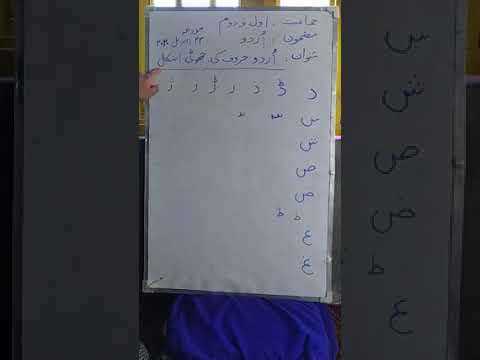 جماعت . اول و دوم مورخہ
مضمون : اُردو ۲۳ اپریل
عنوان . اُردو حروف کی چھوٹی اشکال
د ڈ د ر ڑ ر ژ
س سـ سـ
ش
ص
ض
ط ط
ع
غ